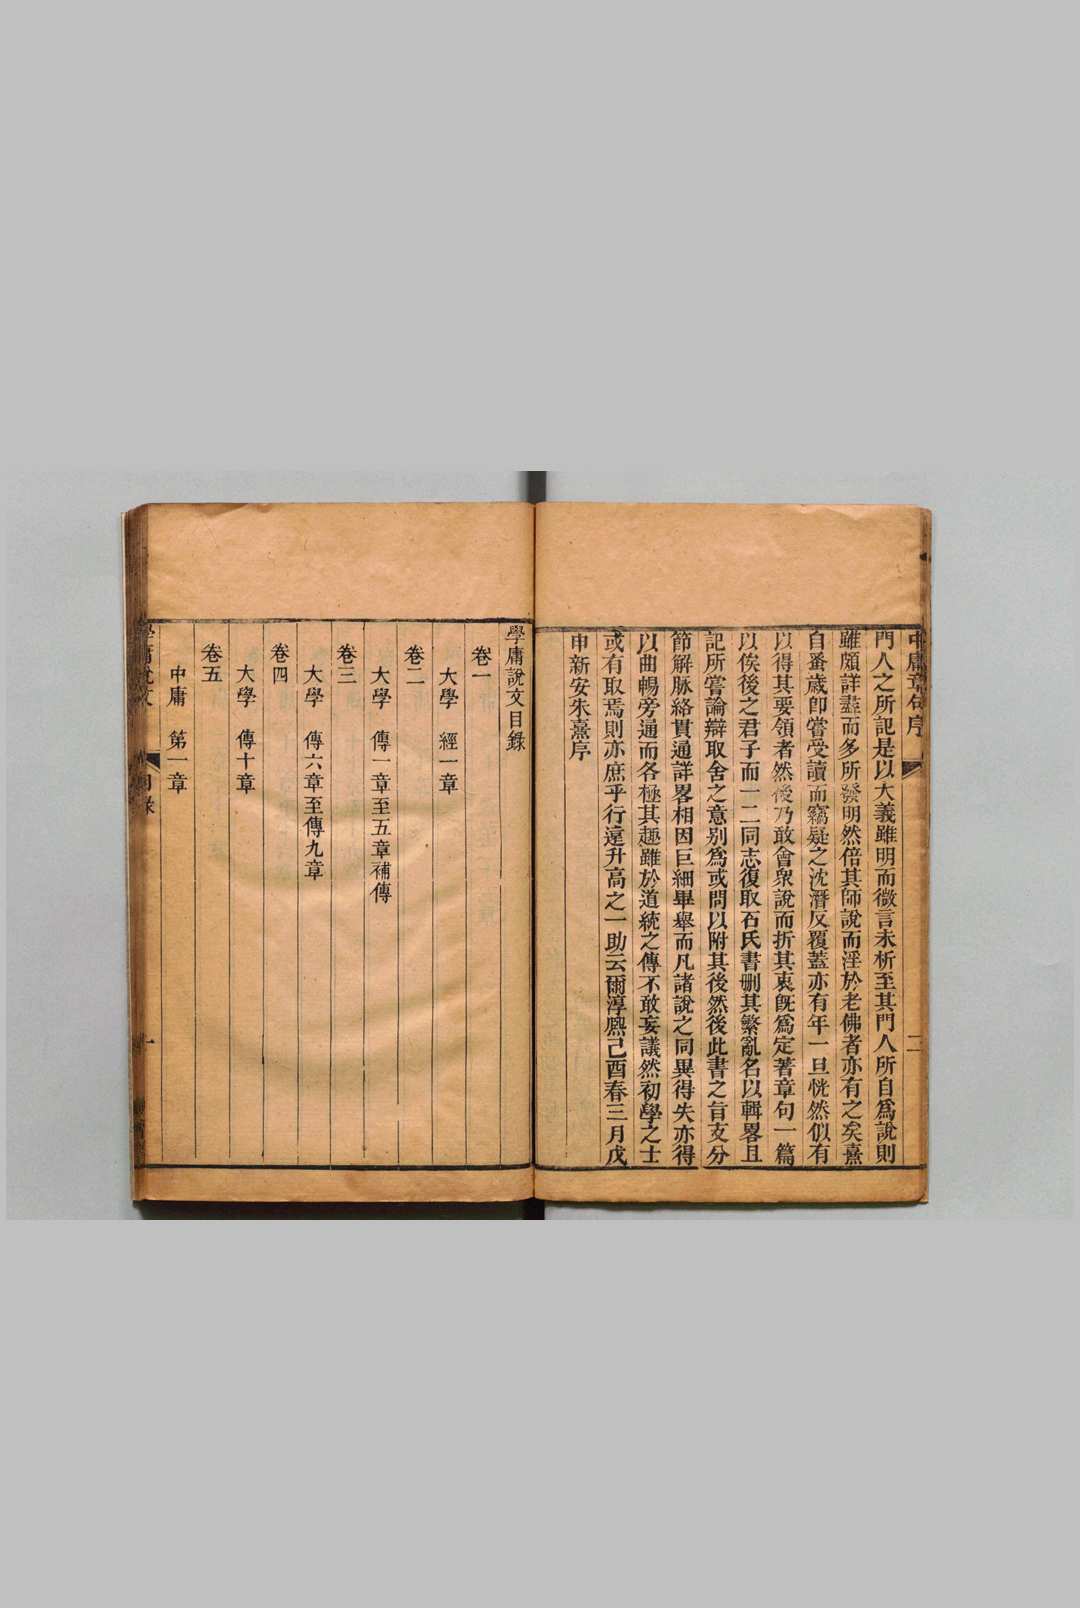 中庸章句序 二
門人之所記是以大義雖明而微言未析至其門人所自爲說則
雖頗詳盡而多所發明然倍其師說而淫於老佛者亦有之矣熹
自蚤歲卽嘗受讀而竊疑之沈潛反覆蓋亦有年一旦恍然似有
以得其要領者然後乃敢會衆說而折其衷旣爲定著章句一篇
以俟後之君子而一二同志復取石氏書刪其繁亂名以輯畧且
記所嘗論辯取舍之意別爲或問以附其後然後此書之旨支分
節解脉絡貫通詳畧相因巨細畢舉而凡諸說之同異得失亦得
以曲暢旁通而各極其趣雖於道統之傳不敢妄議然初學之士
或有取焉則亦庶乎行遠升高之一助云爾淳熈己酉春三月戊
申新安朱熹序
學庸說文目錄
卷一
大學 經一章
卷二
大學 傳一章至五章補傳
卷三
大學 傳六章至傳九章
卷四
大學 傳十章
卷五
中庸 第一章
學庸說文 目錄 一